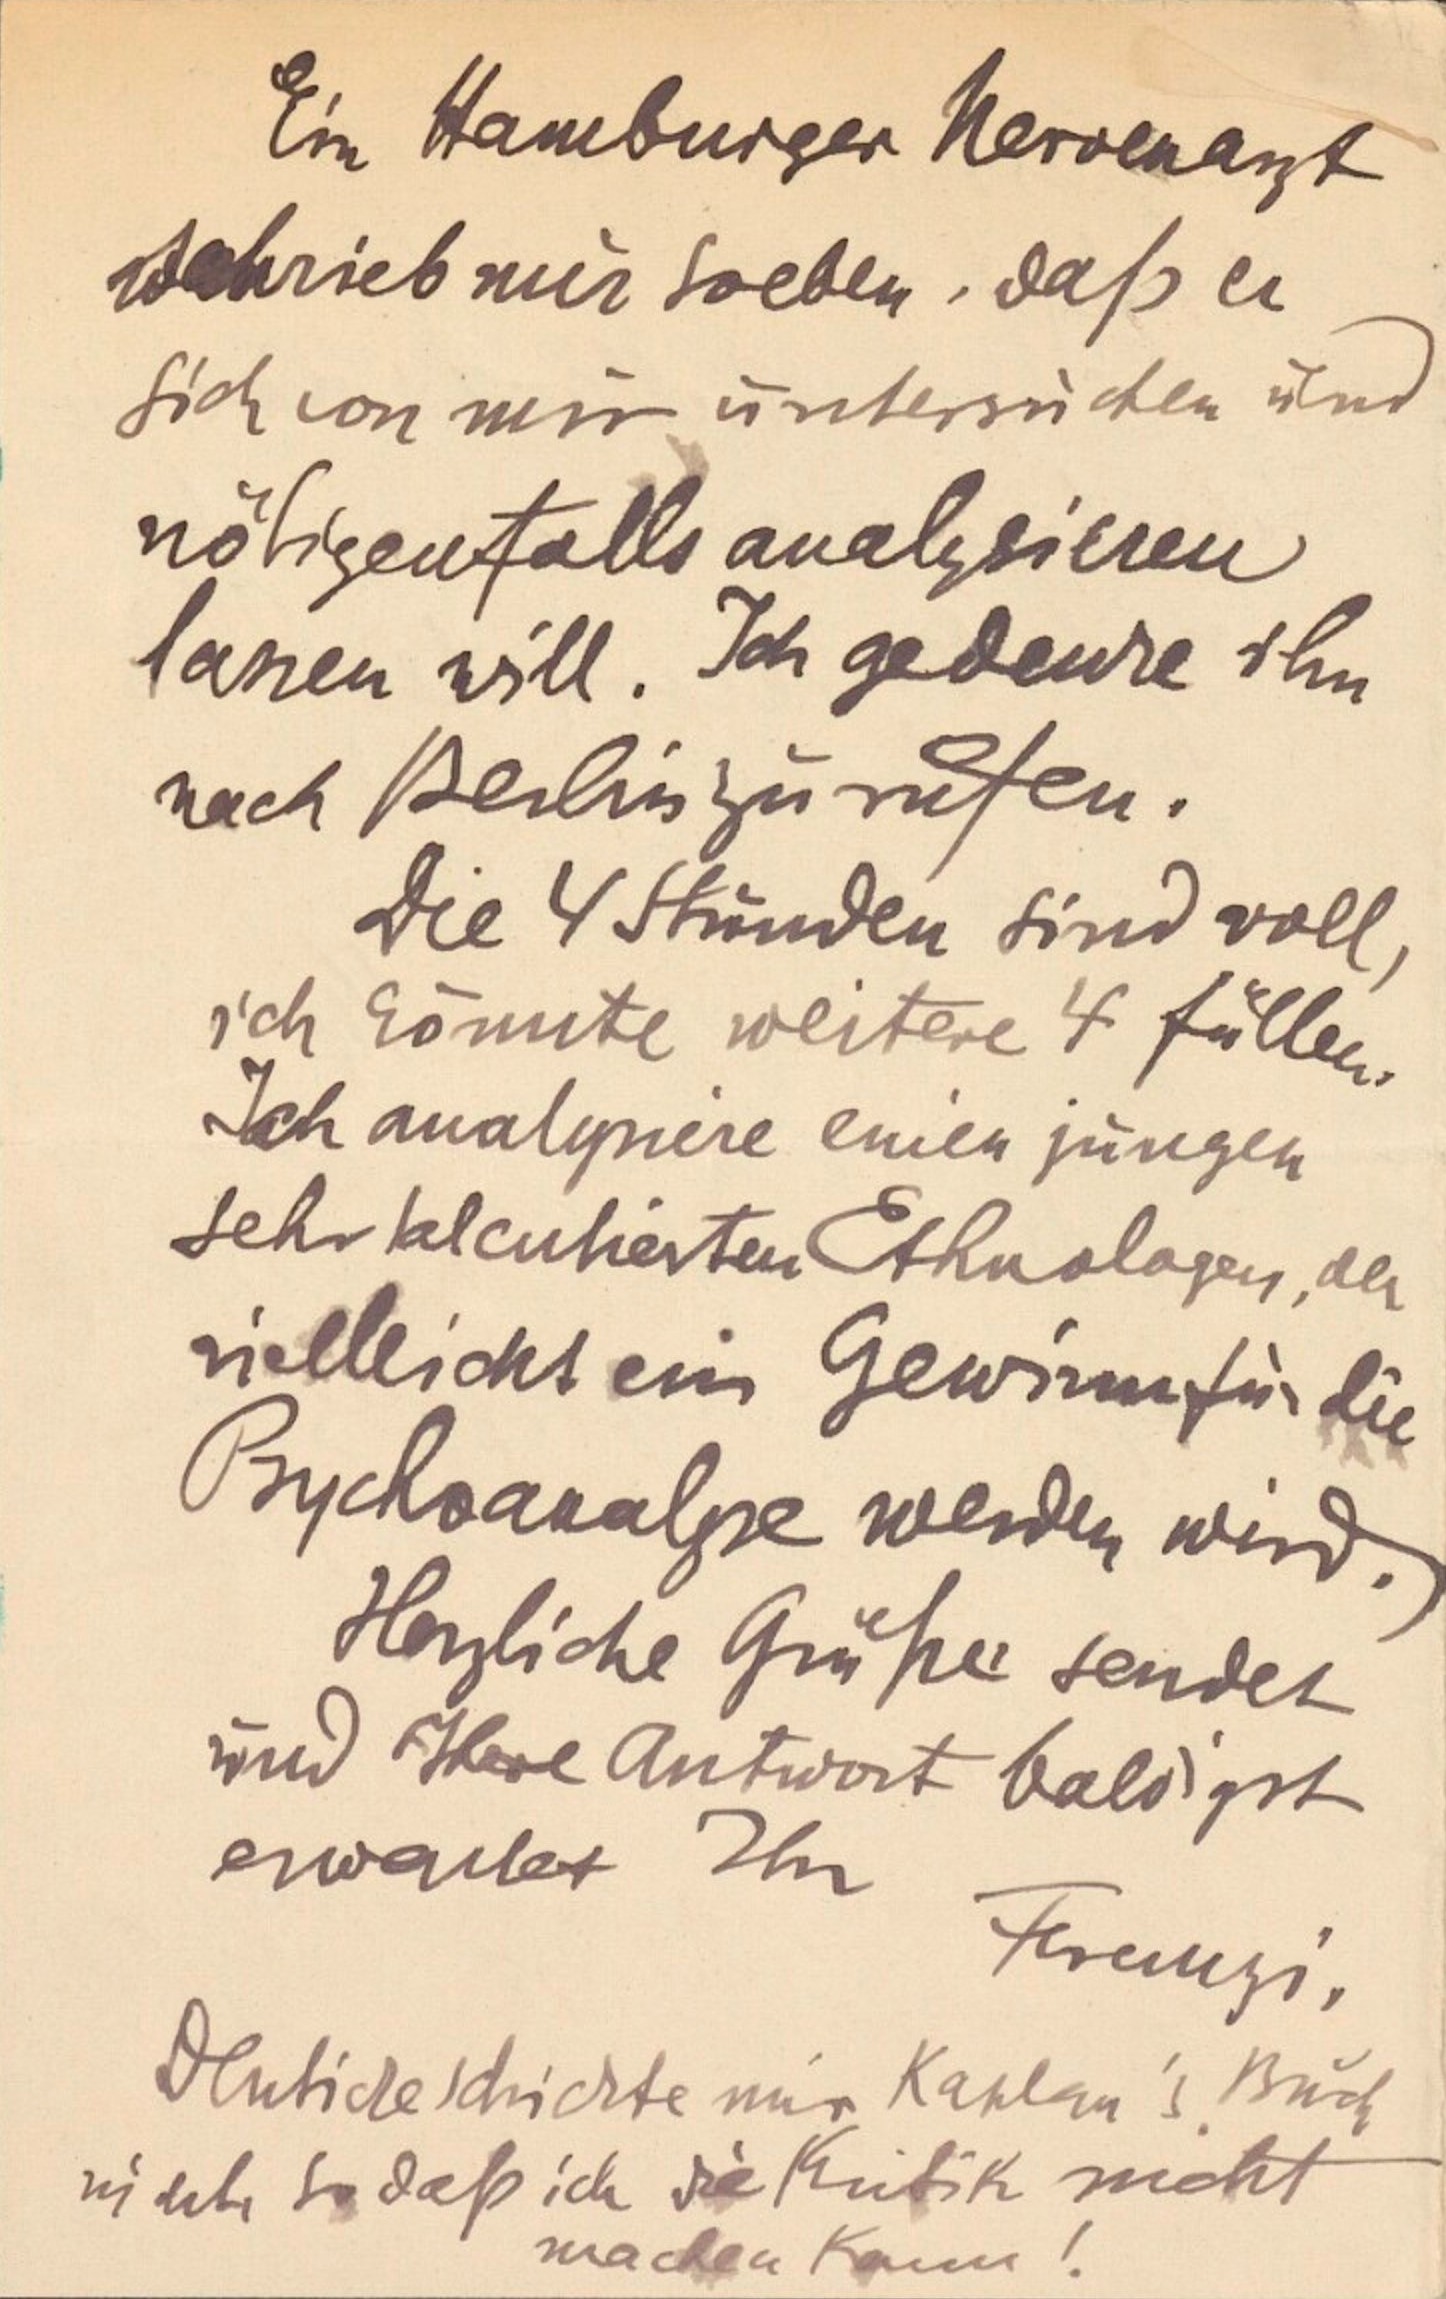 Ein Hamburger Nervenarzt
schrieb mir soeben, daß er
sich von mir untersuchen und
nötigenfalls analysieren
lassen will. Ich gedenke ihn
nach Berlin zu rufen.
Die 4 Stunden sind voll,
ich könnte weitere 4 füllen.
Ich analysiere einen jungen
sehr talentierten Ethnologen, der
vielleicht ein Gewinn für die
Psychoanalyse werden wird.)
Herzliche Grüße sendet
und Ihre Antwort baldigst
erwartet Ihr
Ferenczi.
Deuticke schickte mir Kaplan's Buch
nicht sodaß ich die Kritik nicht
machen kann!